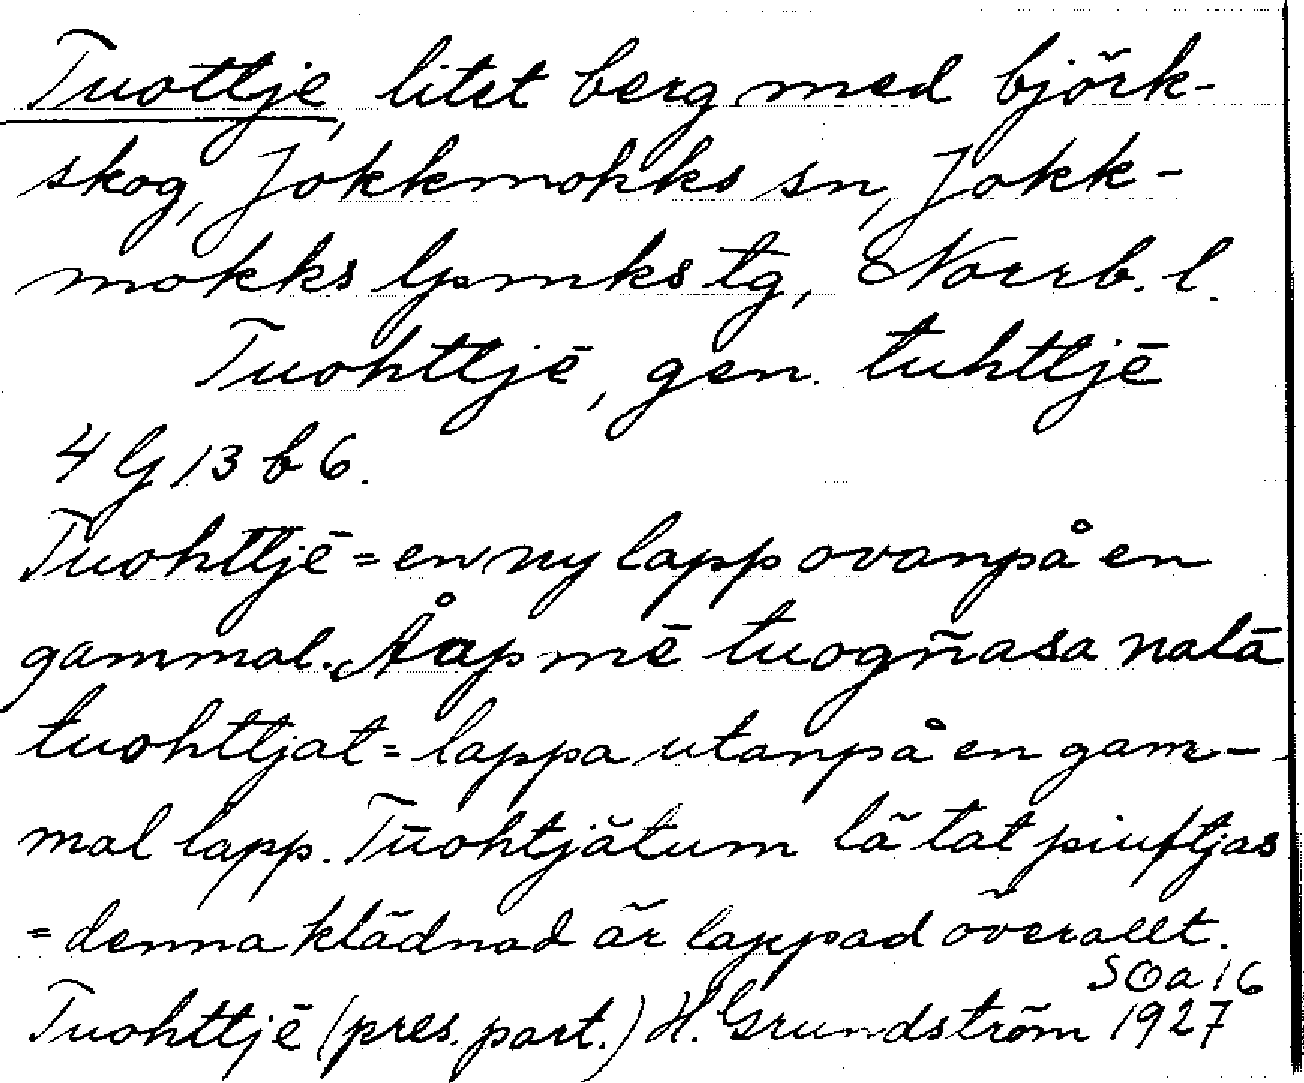 Tuottje, litet berg med björk-
skog, Jokkmokks sn, Jokk-
mokks lpmks tg, Norrb. l.
Tuohttjē, gen. tuhttjē
4 G 13 b 6.
Tuohttjē = en ny lapp ovanpå en
gammal. Åapmē tuogñasa nalā
tuohttjat = lappa utanpå en gam-
mal lapp. Tūohtjātum lā tat piuftjas
= denna klädnad är lappad överallt.
SOa 16
Tuohttjē (pres. part.) H. Grundström 1927